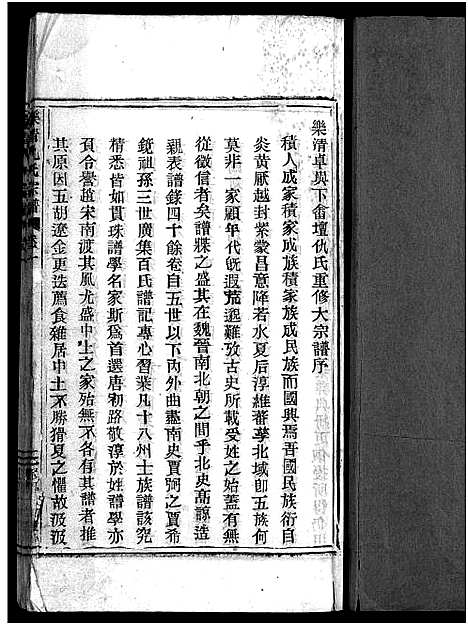 樂清卓與下畲壇仇氏重修大宗譜序
積人成家積家成族積家族成民族而國興焉吾國民族衍自
炎黃厥越封紫蒙昌意降若水夏后淳維蕃孳北域卽五族何
莫非一家顧年代旣遐荒邈難攷古史所載受姓之始蓋有無
從徵信者矣譜牒之盛其在魏晉南北朝之間乎北史高諒造
親表譜錄四十餘卷自五世以下內外曲盡南史賈弼之賈希
鏡祖孫三世廣集百氏譜記專心習業凡十八州士族譜該究
精悉皆如貫珠譜學名家斯爲首選唐初路敬淳於姓譜學亦
頁令譽趙宋南渡其風尤盛中土之家殆無不各有其譜者推
其原因五胡遼金更迭薦食雜居中土不勝猾夏之懼故汲汲